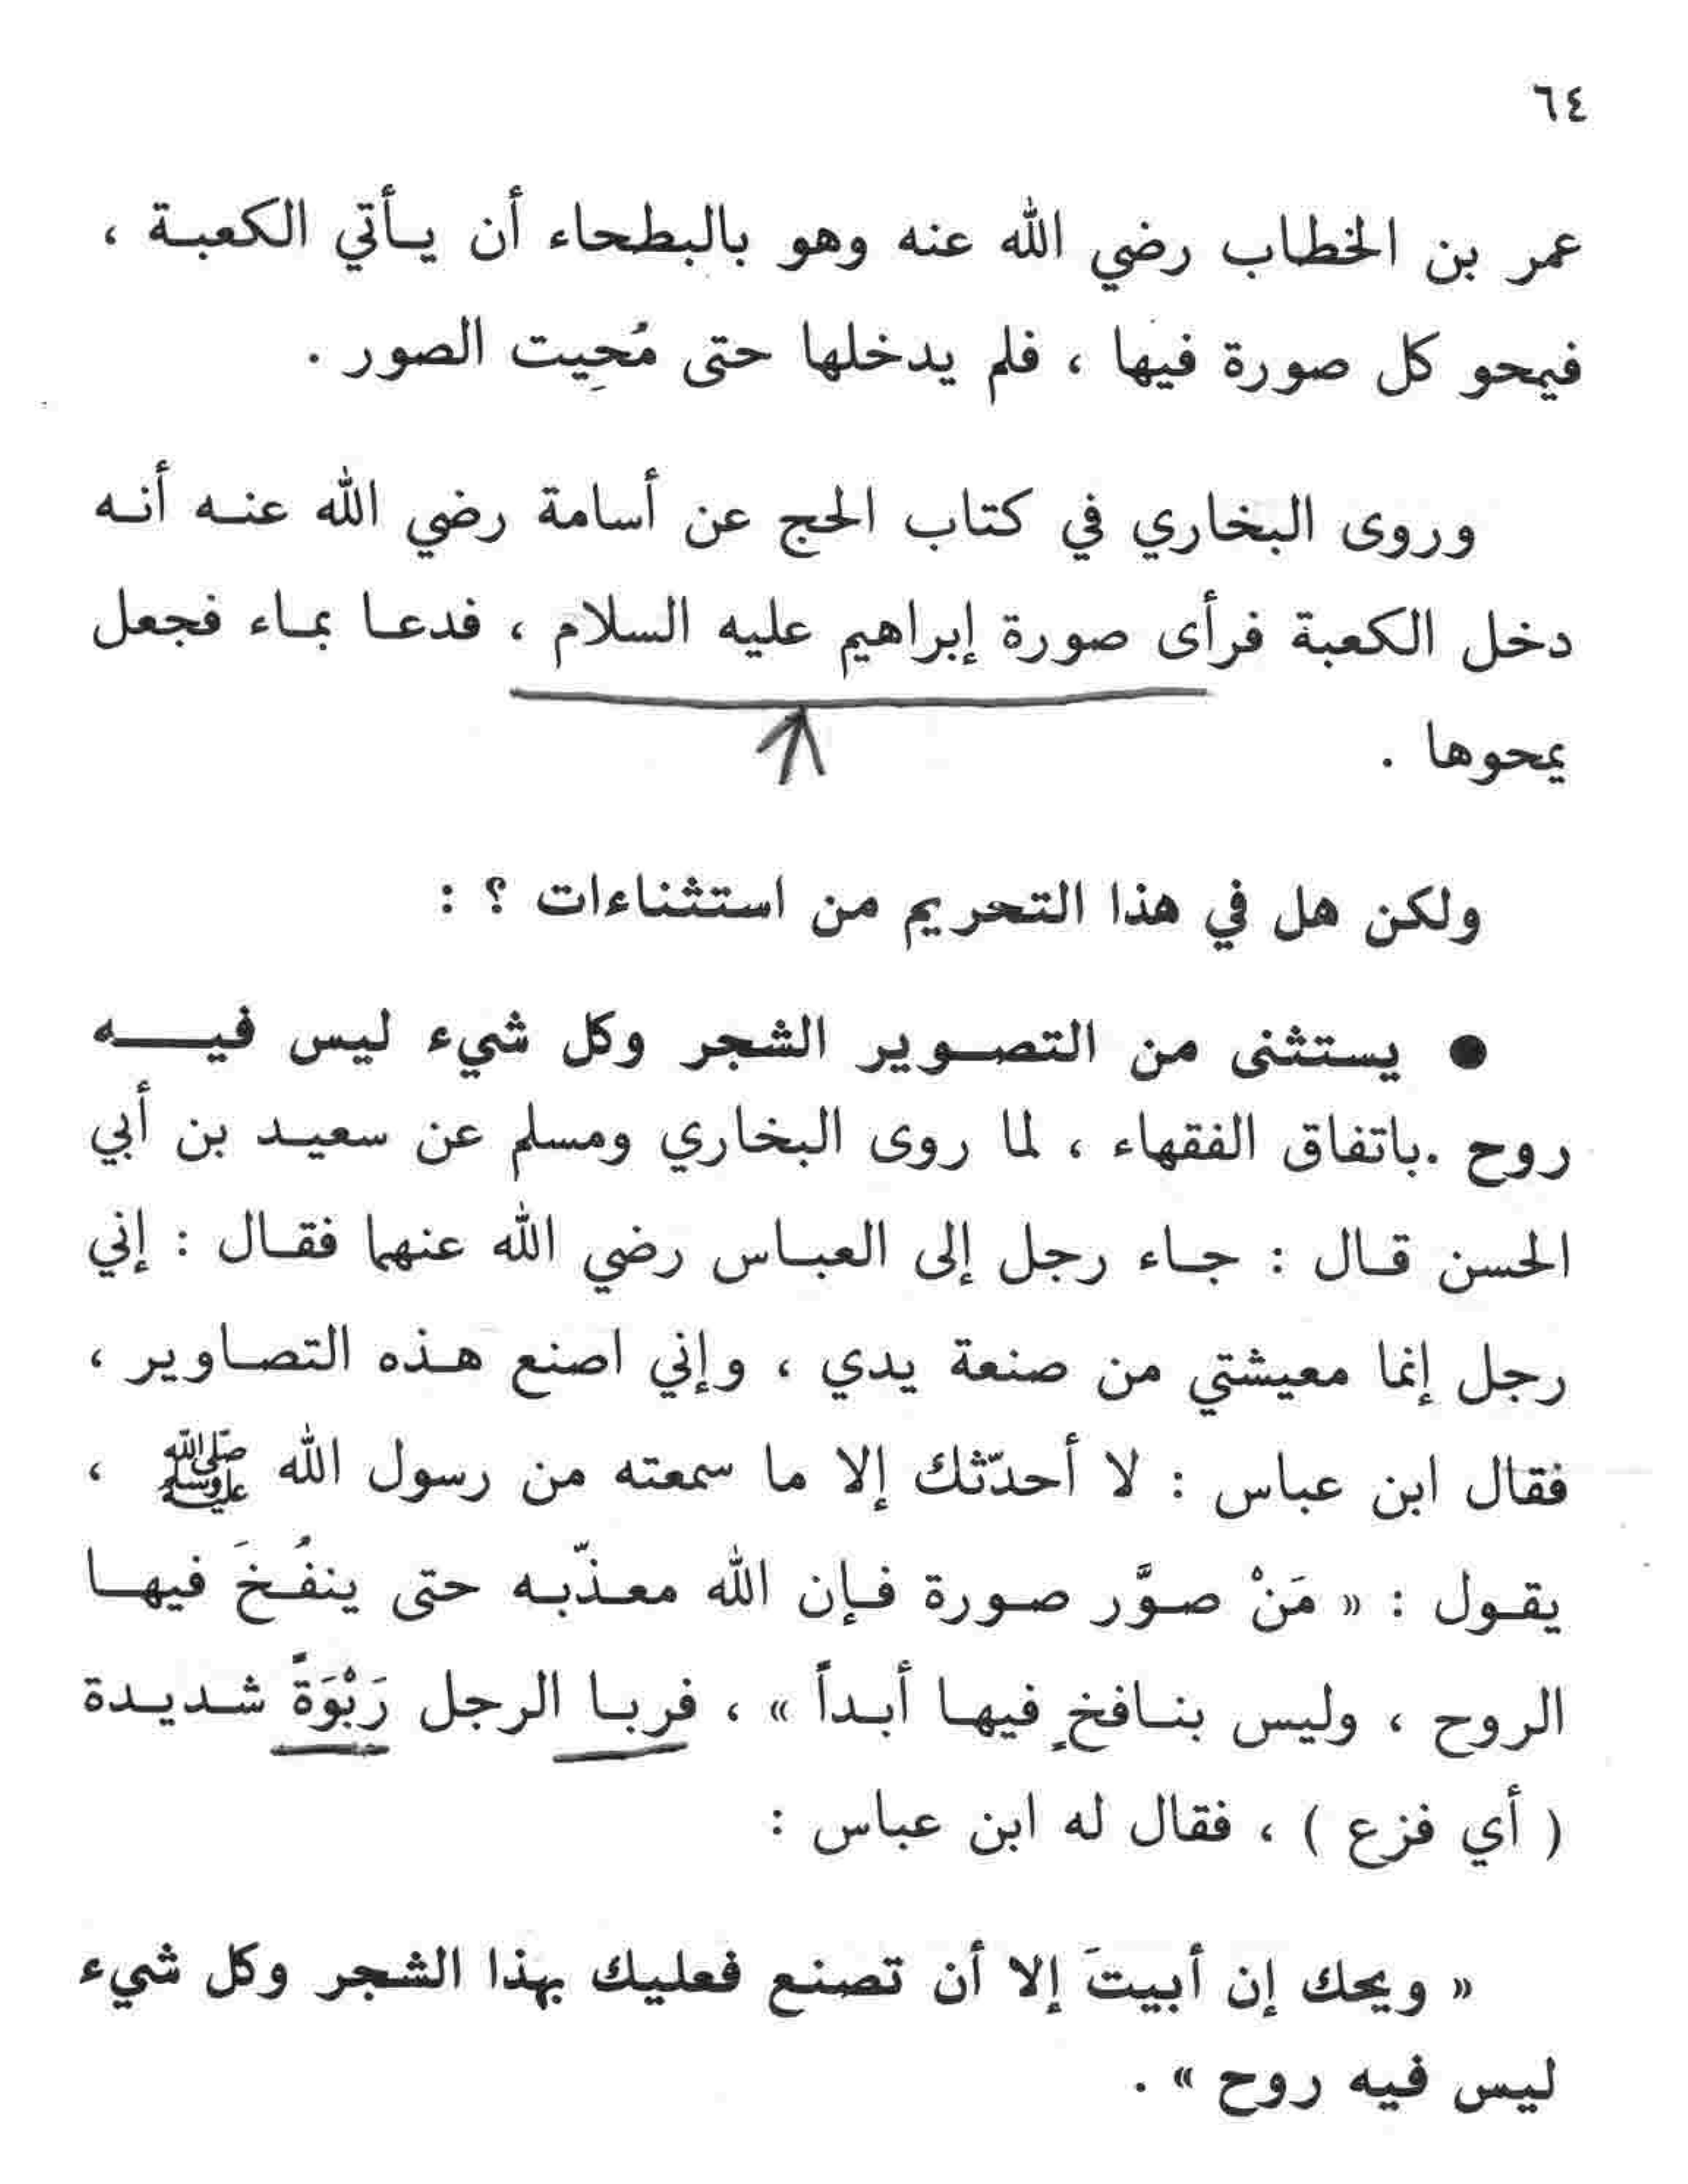 ٦٤
عمر بن الخطاب رضي الله عنه وهو بالبطحاء أن يـأتي الكعبـة ،
فيمحو كل صورة فيها ، فلم يدخلها حتى مُحِيت الصور .
وروى البخاري في كتاب الحج عن أسامة رضي الله عنـه أنـه
دخل الكعبة فرأى صورة إبراهيم عليه السلام ، فدعـا بمـاء فجعل
يمحوها .
ولكن هل في هذا التحريم من استثناءات ؟ :
● يستثنى من التصـوير الشجر وكل شيء ليس فيـــه
روح .باتفاق الفقهاء ، لما روى البخاري ومسلم عن سعيـد بن أبي
الحسن قـال : جـاء رجل إلى العبـاس رضي الله عنهما فقـال : إني
رجل إنما معيشتي من صنعة يدي ، وإني اصنع هـذه التصـاوير ،
فقال ابن عباس : لا أحدّثك إلا ما سمعته من رسول الله ﷺ ،
يقـول : « مَنْ صـوَّر صـورة فـإن الله معـذّبـه حتى ينفُـخَ فيهـا
الروح ، وليس بنـافخٍ فيهـا أبـداً » ، فربـا الرجل رَبْوَةً شـديـدة
( أي فزع ) ، فقال له ابن عباس :
« ويحك إن أبيتَ إلا أن تصنع فعليك بهذا الشجر وكل شيء
ليس فيه روح » .